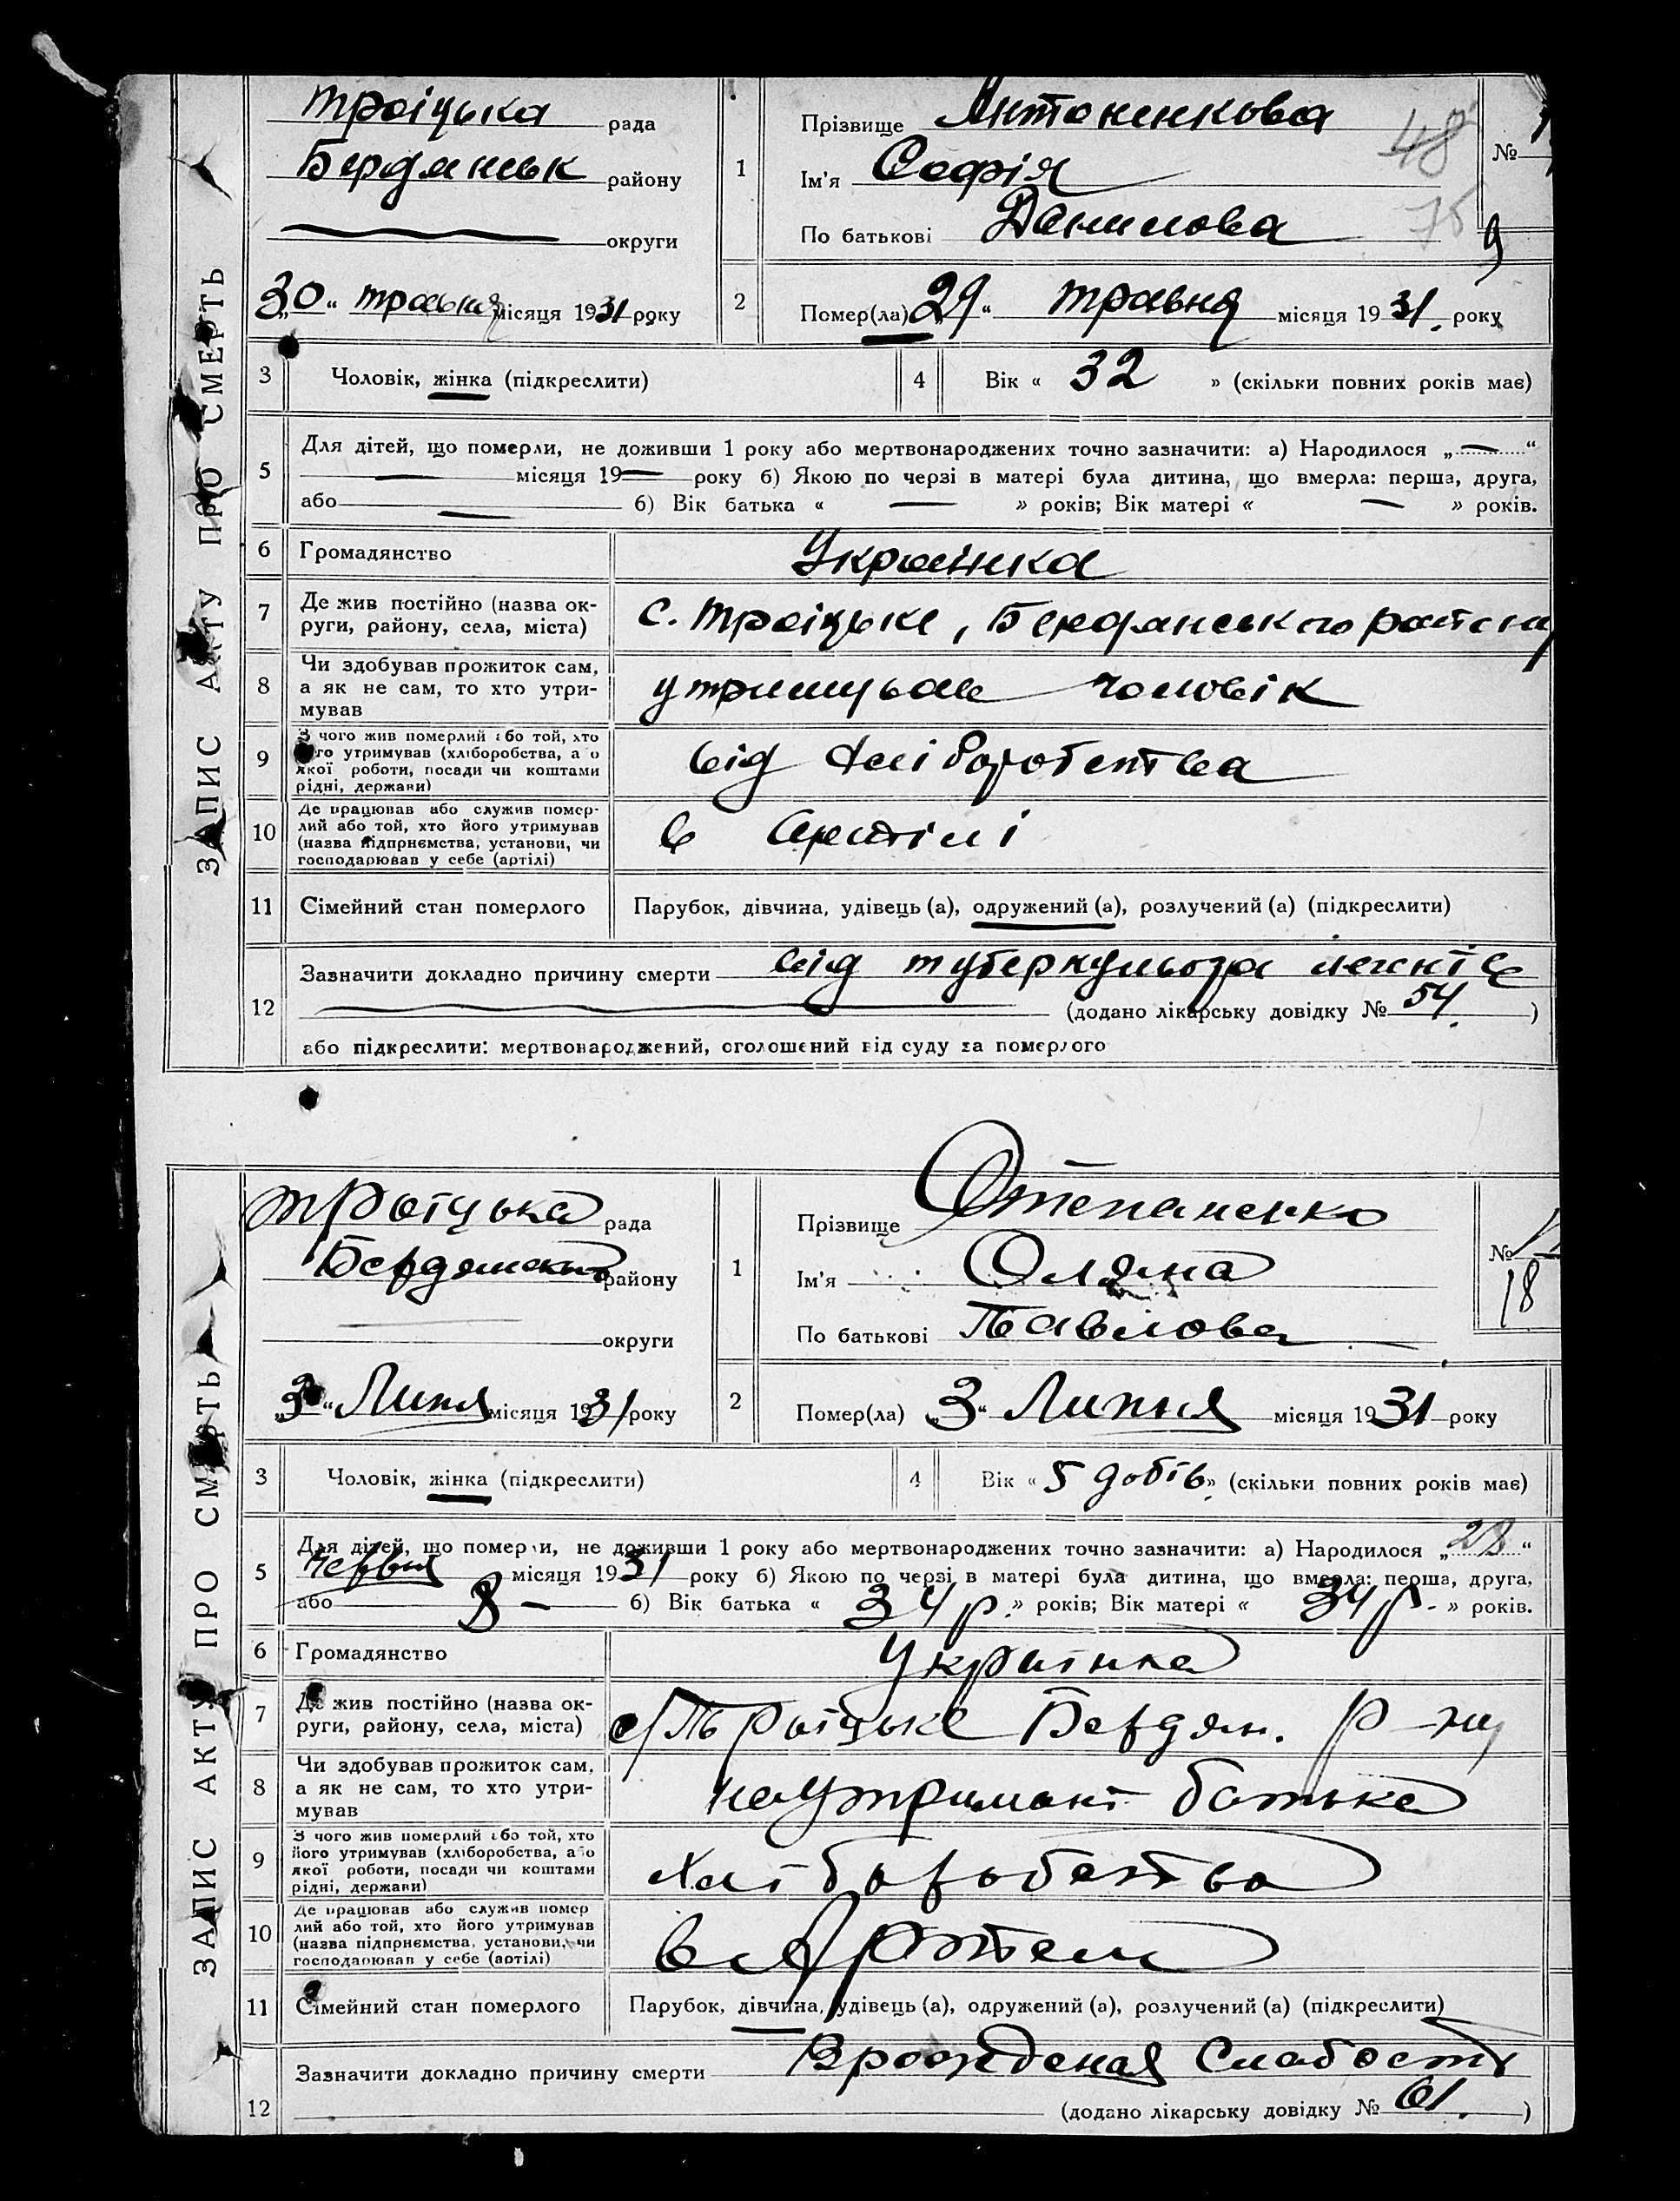 ЗАПИС АКТУ ПРО СМЕРТЬ
Троіцька рада
Бердянськ району
округи
„30“ травня місяця 1931 року
1
Прізвище Антоненкова
Ім'я Софія
По батькові Данилова
48
75
№
9
2
Помер(ла) „29“ травня місяця 1931. року
3 Чоловік, жінка (підкреслити)
4 Вік « 32 » (скільки повних років має)
5 Для дітей, що померли, не доживши 1 року або мертвонароджених точно зазначити: а) Народилося „—“
— місяця 19— року б) Якою по черзі в матері була дитина, що вмерла: перша, друга,
або — б) Вік батька « — » років; Вік матері « — » років.
6 Громадянство Українка
7 Де жив постійно (назва ок-
руги, району, села, міста) с. Троіцьке, Бердянського району
8 Чи здобував прожиток сам,
а як не сам, то хто утри-
мував
утримував чоловік
9 З чого жив померлий або той, хто
його утримував (хліборобства, або
якої роботи, посади чи коштами
рідні, держави)
від хліборобства
10 Де працював або служив помер-
лий або той, хто його утримував
(назва підпрнємства, установи, чи
господарював у себе (артілі)
в артілі
11 Сімейний стан померлого Парубок, дівчина, удівець (а), одружений (а), розлучений (а) (підкреслити)
12 Зазначити докладно причину смерти від туберкульоза легнів
(додано лікарську довідку № 54. )
або підкреслити: мертвонароджений, оголошений від суду за померлого
ЗАПИС АКТУ ПРО СМЕРТЬ
Троїцька рада
району
округи
„3“ Липня місяця 1931 року
1
Прізвище Степаненко
Ім'я Оляна
По батькові Павлова
№
18
2
Помер(ла) „3“ Липня місяця 1931 року
3 Чоловік, жінка (підкреслити)
4 Вік « 5 добів » (скільки повних років має)
5 Для дітей, що померли, не доживши 1 року або мертвонароджених точно зазначити: а) Народилося „28“
червня місяця 1931 року б) Якою по черзі в матері була дитина, що вмерла: перша, друга,
або 8 — б) Вік батька « 34 р. » років; Вік матері « 34 р. » років.
6 Громадянство Українка
7 Де жив постійно (назва ок-
руги, району, села, міста) с/Троїцьке Бердян. р-ну
8 Чи здобував прожиток сам,
а як не сам, то хто утри-
мував
на утримані батька
9 З чого жив померлий або той, хто
його утримував (хліборобства, або
якої роботи, посади чи коштами
рідні, держави)
хліборобства
10 Де працював або служив помер
лий або той, хто його утримував
(назва підпрнємства, установи, чи
господарював у себе (артілі)
в Артели
11 Сімейний стан померлого Парубок, дівчина, удівець (а), одружений (а), розлучений (а) (підкреслити)
12 Зазначити докладно причину смерти Врожденая Слабость
(додано лікарську довідку № 61. )